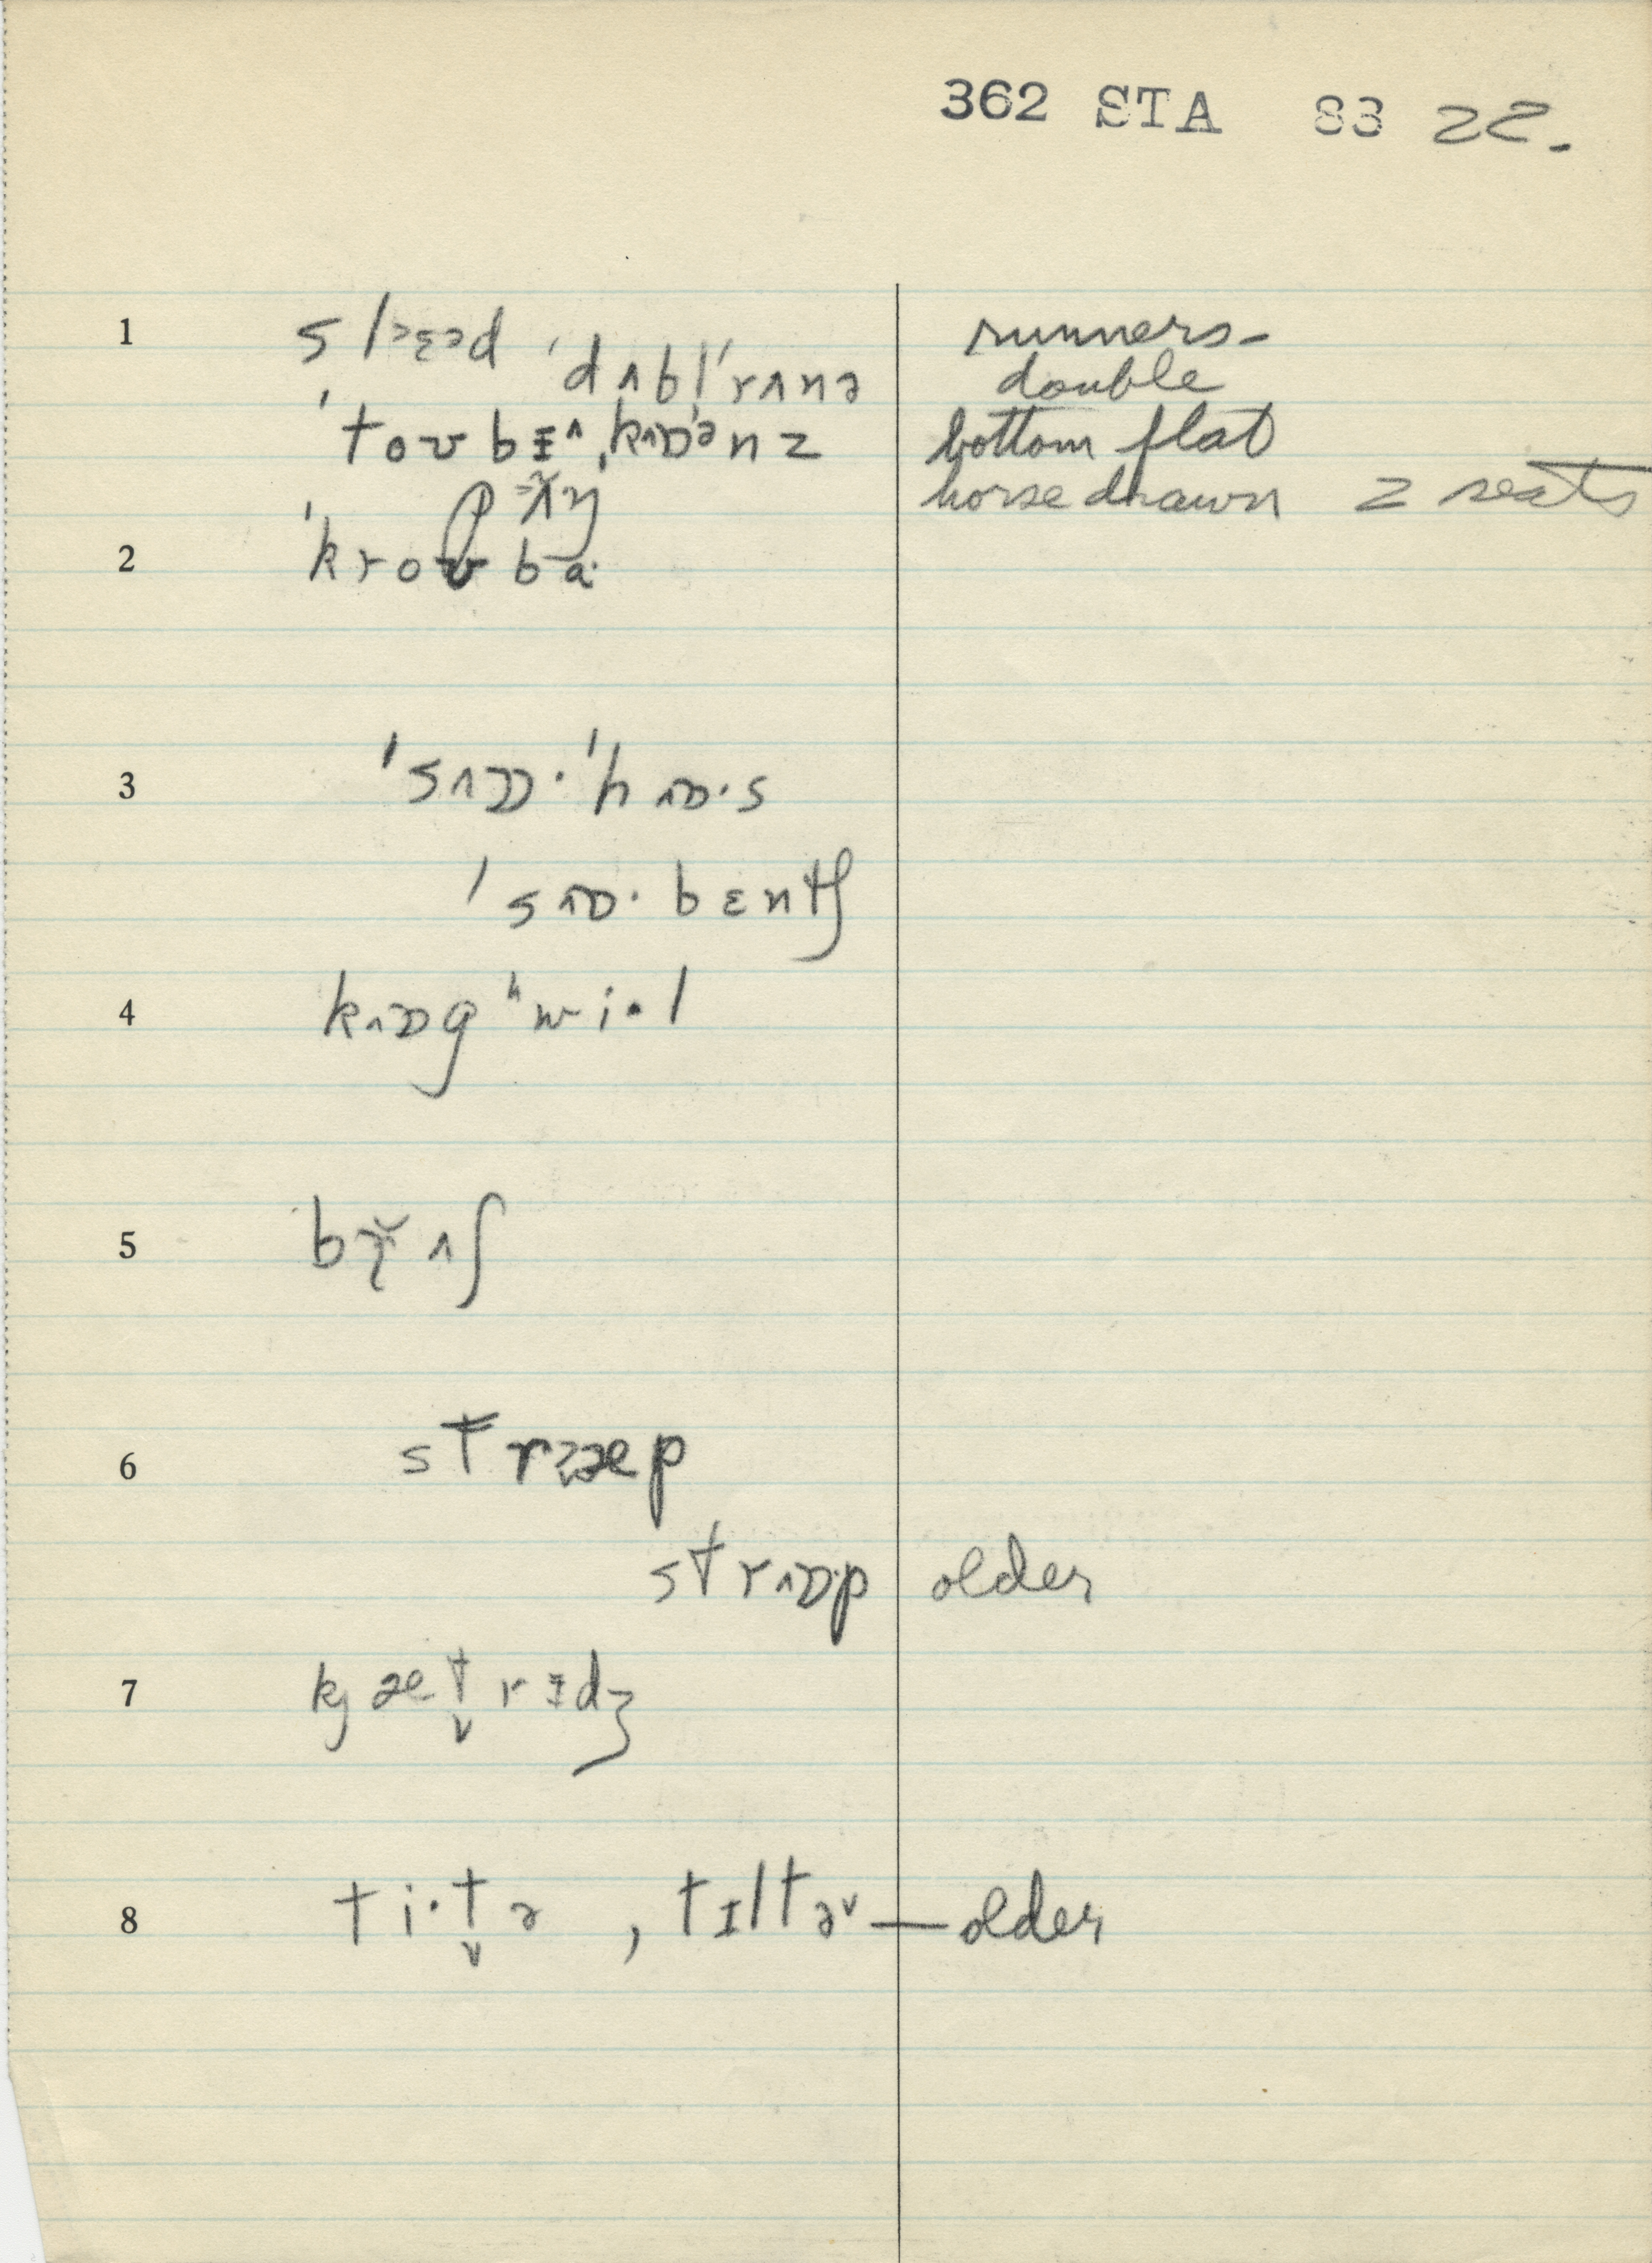 362 STA 83 22.
1 slᵊɛᵊd ˈdʌblˈrʌnə runners-
double
ˈtoʊbɨˌkʌɒᵊnz bottom flat
horse drawn 2 seats
2 ˈkroʊbɑ
3 ˈsʌɒ·ˈhʌɒ·s
ˈsʌɒ·bɛntʃ
4 kʌɒgʰwi·l
5 bɤ̆ʌʃ
6 strɜæp
strʌɒ·p older
7 kjæt̬rɨdʒ
8 ti·t̬ə , tɪltə˅ — older